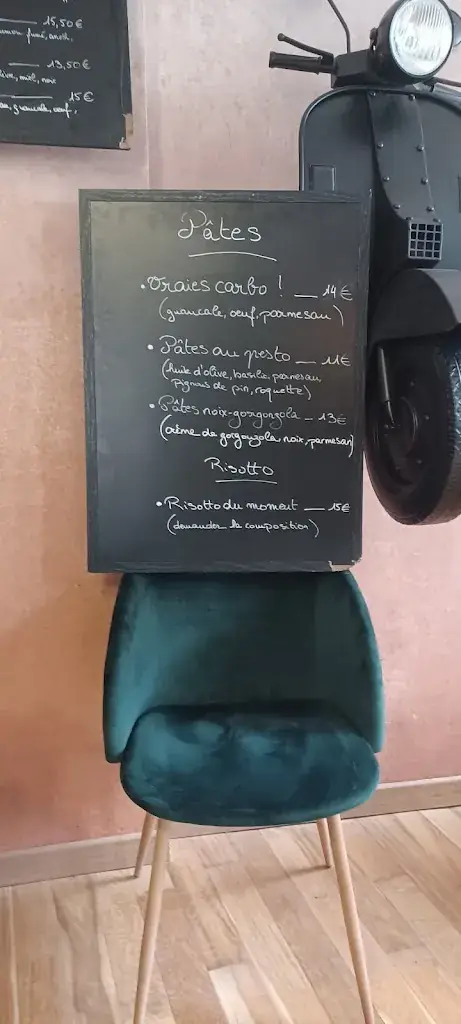 15,50€
fumé,
13,50€
olive, miel, noix
15€
guancale, oeuf,
Pâtes
• Vraies carbo ! __ 14€
(guancale, oeuf, parmesan)
• Pâtes au pesto __ 11€
(huile d'olive, basilic, parmesan
pignons de pin, roquette)
• Pâtes noix-gorgonzola _ 13€
(crème de gorgonzola, noix, parmesan)
Risotto
• Risotto du moment __ 15€
(demander la composition)